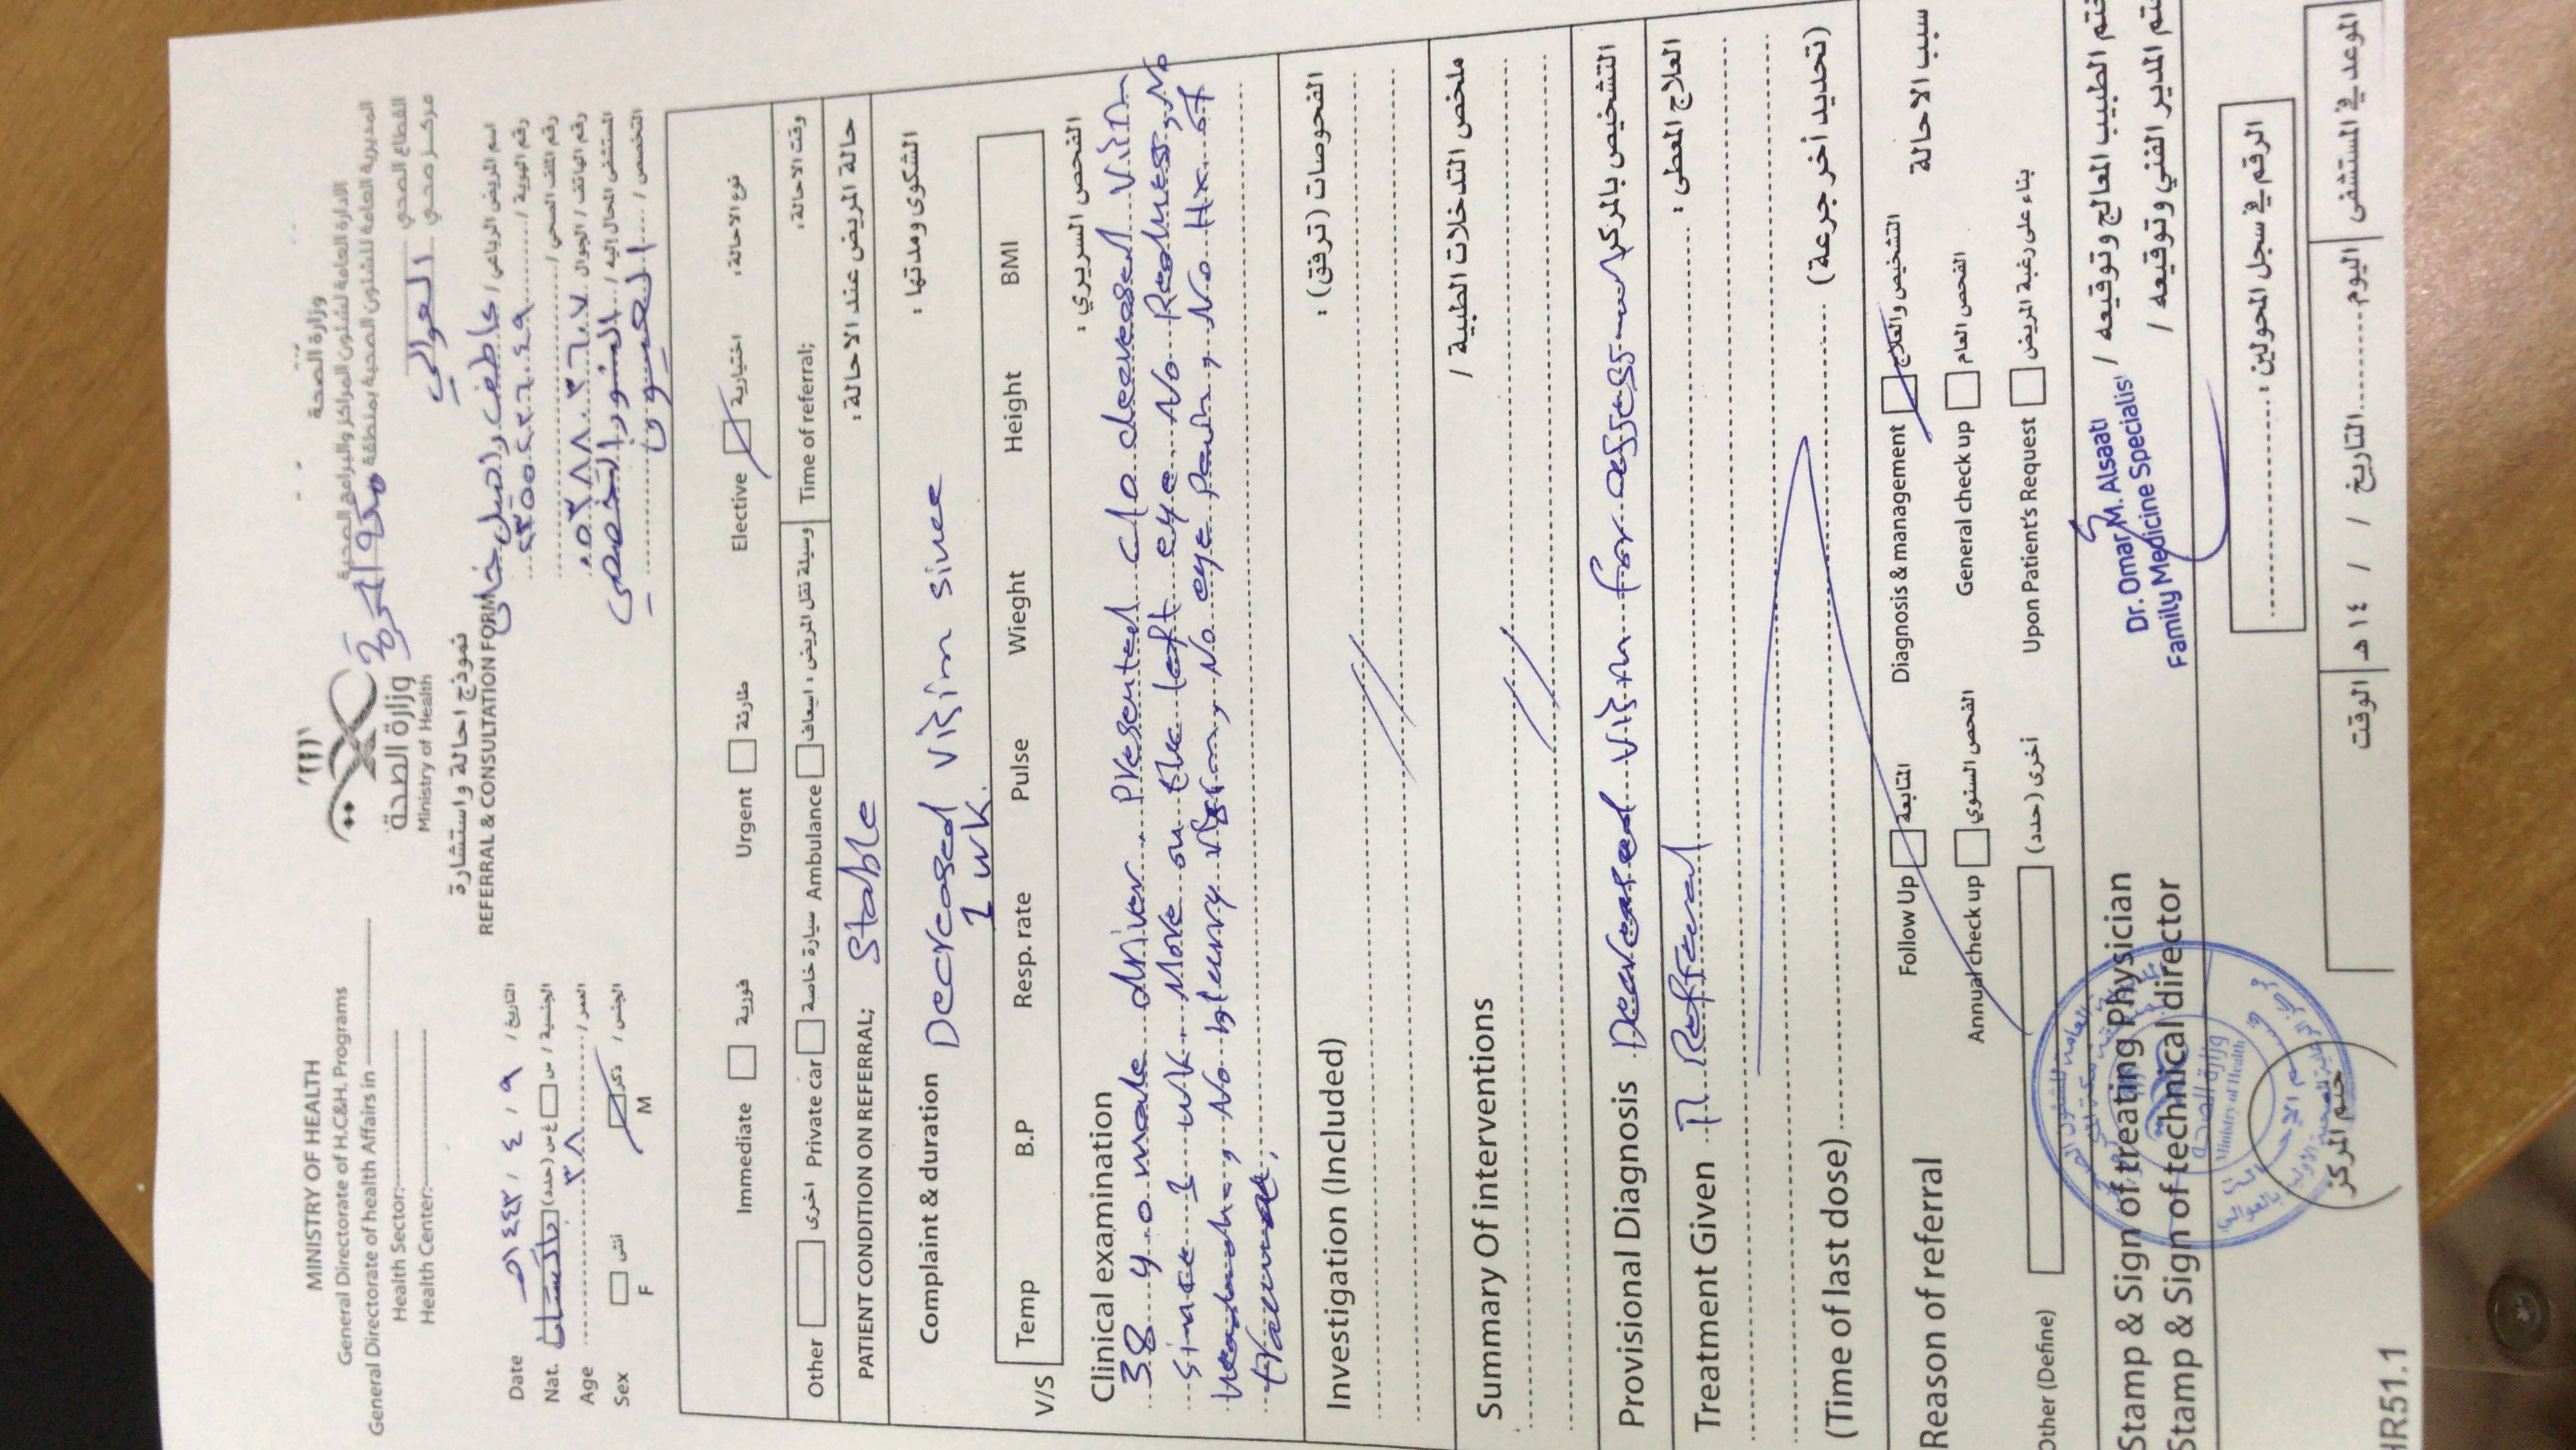 MINISTRY OF HEALTH
General Directorate of H.C&H. Programs
General Directorate of health Affairs in
Health Sector:
Health Center:
وزارة الصحة
Ministry of Health
نموذج احالة واستشارة
REFERRAL & CONSULTATION FORM
وزارة الصحة
الادارة العامة لشئون المراكز والبرامج الصحية
المديرية العامة للشئون الصحية بمنطقة مكة المكرمة
القطاع الصحي
مركز صحي العوالي
Date ٩ / ٤ / ١٤٤٣هـ التاريخ /
Nat. باكستان غ س (حدد) س الجنسية /
Age ٣٨ العمر /
Sex أنثى ذكر الجنس /
F M
اسم المريض الرباعي / عاطف راهيل خان
رقم الهوية /
رقم الملف الصحي /
رقم الهاتف / الجوال ٠٥٣٨٨٠٣٦٠٧
المستشفى المحال إليه / النور التخصصي
التخصص / العيون
Immediate فورية Urgent طارئة Elective اختيارية نوع الاحالة:
Other اخرى Private car سيارة خاصة Ambulance وسيلة نقل المريض : اسعاف Time of referral; وقت الاحالة:
PATIENT CONDITION ON REFERRAL; Stable حالة المريض عند الاحالة:
Complaint & duration Decreased vision since الشكوى ومدتها :
1 wk.
V/S Temp B.P Resp. rate Pulse Wieght Height BMI
Clinical examination الفحص السريري :
38 y.o male driver. Presented c/o decreased vision
since 1 wk. More on the left eye. No Redness, No
headache, No blurry vision, No eye pain, No Hx. of
trauma.
Investigation (Included) الفحوصات (ترفق) :
Summary Of interventions ملخص التدخلات الطبية /
Provisional Diagnosis Decreased vision for assessment التشخيص بالمركز
Treatment Given Refferal العلاج المعطى :
(Time of last dose) (تحديد أخر جرعة)
Reason of referral Follow Up المتابعة Diagnosis & management التشخيص والعلاج سبب الاحالة
Annual check up الفحص السنوي General check up الفحص العام
Other (Define) أخرى (حدد) Upon Patient's Request بناء على رغبة المريض
Stamp & Sign of treating Physician ختم الطبيب المعالج وتوقيعه /
Dr. Omar M. Alsaati
Family Medicine Specialist
Stamp & Sign of technical director ختم المدير الفني وتوقيعه /
وزارة الصحة
Ministry of Health
ختم المركز
الرقم في سجل المحولين :
الموعد في المستشفى اليوم التاريخ / / ١٤ هـ الوقت
HR51.1